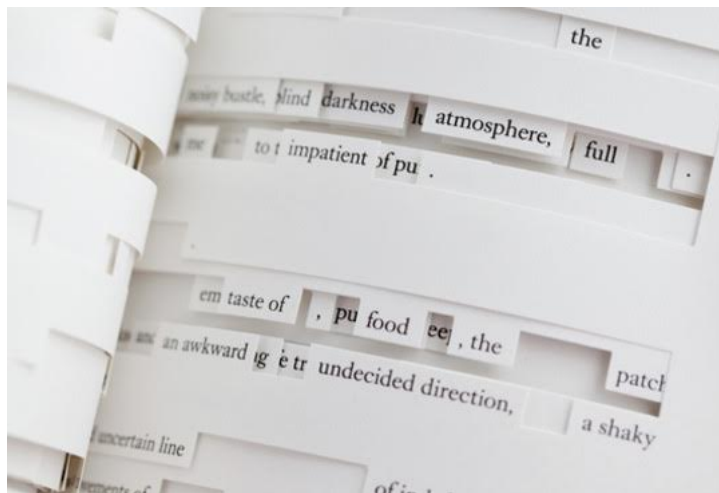 the
noisy bustle, blind darkness atmosphere, full .
me to t impatient of pu .
em taste of , pu food ee , the patch
an awkward g e tr undecided direction, a shaky
uncertain line
of